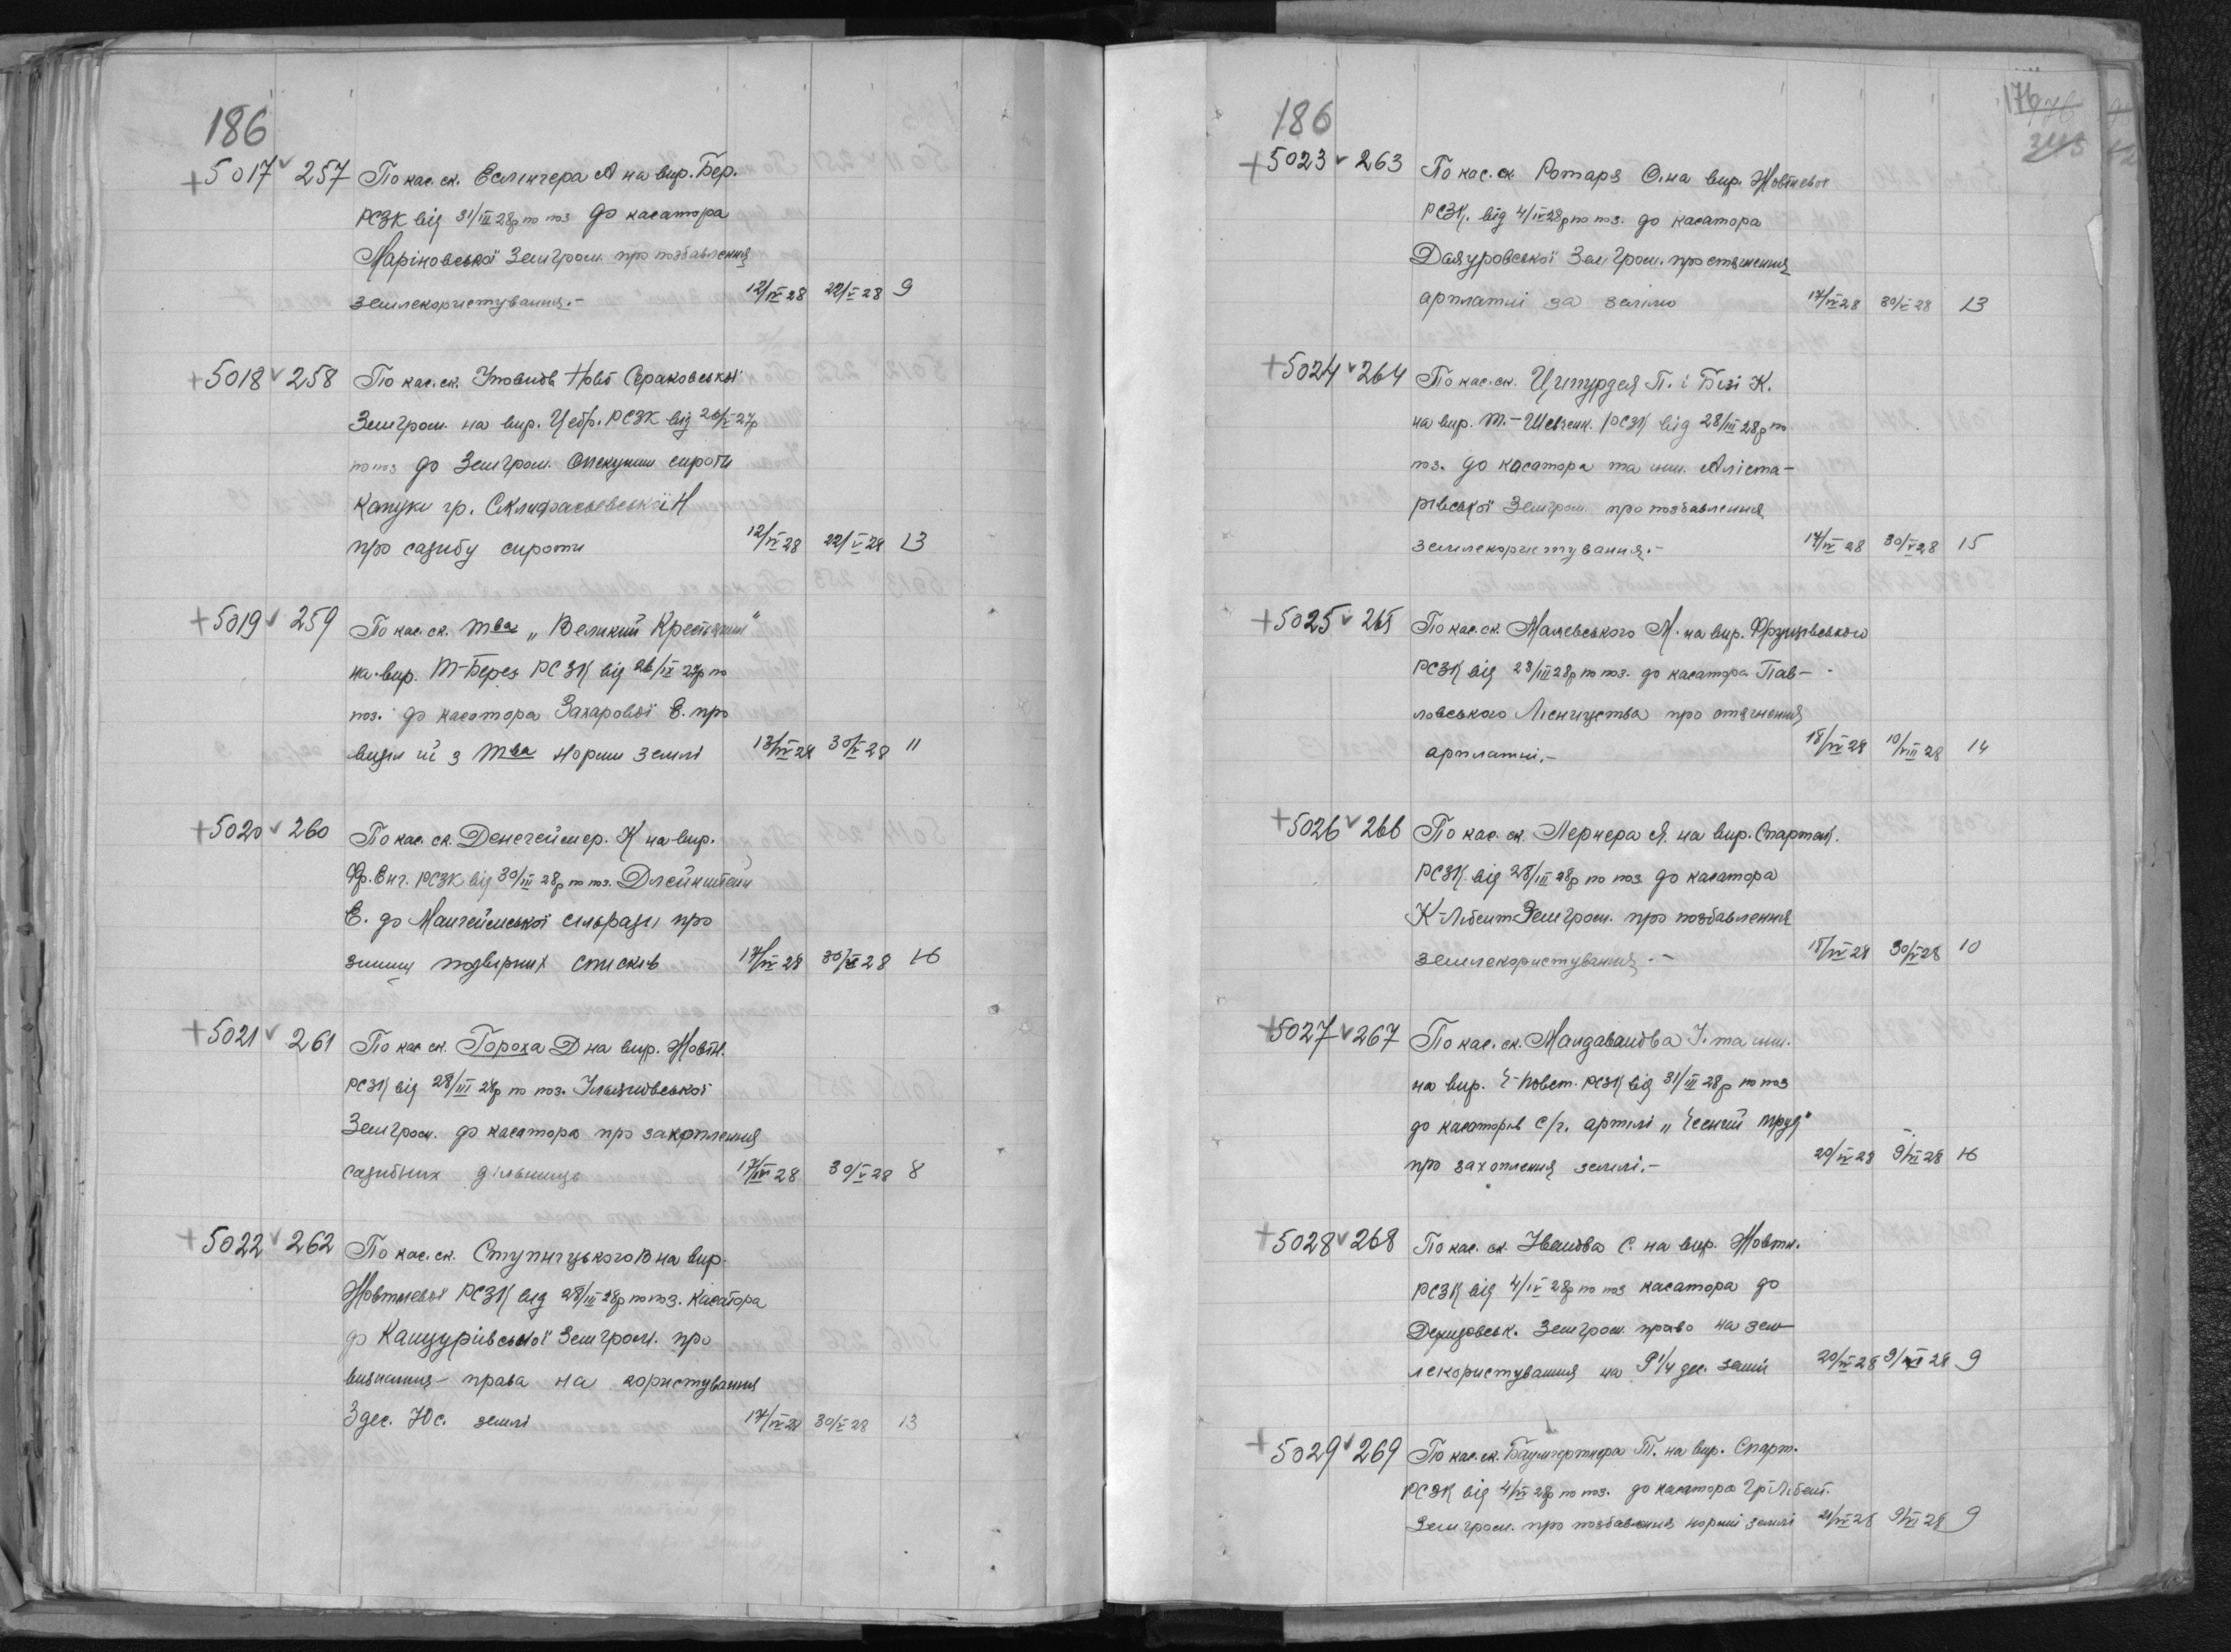 186
+5017 v 257 По кас. ск. Еслінгера А на вир. Бер.
РСЗК від 31/III 28р по поз до касатора
Маріновської Земгром. про позбавлення
землекористування.- 12/IV 28 22/V 28 9
+5018 v 258 По кас. ск. Ново Сераковської
Земгром. на вир. Цебр. РСЗК від 27р
по поз до Земгром. Опекунши сироти
гр. Н
про садибу сироти 12/IV 28 22/V 28 13
+5019 v 259 По кас. ск. тва „Великий Крестьянин"
на вир. Т-Берез РСЗК від 26/IX 27р по
поз. до касатора Захарової Е. про
виділ їй з тва норми землі 13/IV 28 30/V 28 11
+5020 v 260 По кас. ск. Денегеймер. К на вир.
Фр. Енг. РСЗК від 30/III 28р по поз.
Е. до Мангеймської сільради про
подвірних списків 17/IV 28 28 16
+5021 v 261 По кас ск. Гороха Д на вир. Жовтн.
РСЗК від 28/III 28р по поз.
Земгром. до касатора про закріплення
садибних дільниць 17/IV 28 30/V 28 8
+5022 v 262 По кас. ск. Ступницького В на вир.
Жовтневої РСЗК від 28/III 28р по поз. Касатора
до Кантурівської Земгром. про
визнання права на користування
3 дес. землі 17/IV 28 30/V 28 13
186
176
+5023 v 263 По кас. ск Ротаря О. на вир. Жовтневої
РСЗК. від 4/IV 28р по поз. до касатора
Земгром. про стягнення
арплатні за землю 17/IV 28 30/V 28 13
+5024 v 264 По кас. ск. Ципурдея П. і Бізі К.
на вир. Т.-Шевченк. РСЗК від 28/III 28р по
поз. до касатора та инш. Аліста-
рівської Земгром про позбавлення
землекористування.- 17/IV 28 30/V 28 15
+5025 v 265 По кас. ск. Малєвського М. на вир. Фрунзівського
РСЗК від 28/III 28р по поз. до касатора Пав-
ловського Лісництва про стягнення
арплатні.- 18/IV 28 10/VIII 28 14
+5026 v 266 По кас. ск. Лернера Я. на вир. Спартак.
РСЗК від 28/III 28р по поз до касатора
К-Лібент Земгром. про позбавлення
землекористування.- 18/IV 28 30/V 28 10
+5027 v 267 По кас. ск. Малдаванова І. та инш.
на вир. РСЗК від 31/III 28р по поз
до касаторів с/г. артілі „Чесний труд"
про захоплення землі.- 20/IV 28 9/VI 28 16
+5028 v 268 По кас. ск. Іванова С. на вир. Жовтн.
РСЗК від 4/IV 28р по поз касатора до
Земгром. право на зем-
лекористування на 9 1/4 дес. землі 20/IV 28 9/VI 28 9
+5029 v 269 По кас. ск. Баумгертнера Т. на вир. Спарт.
РСЗК від 4/IV 28р по поз. до касатора Гр Лібент.
Земгром. про позбавлення норми землі 21/IV 28 9/VI 28 9